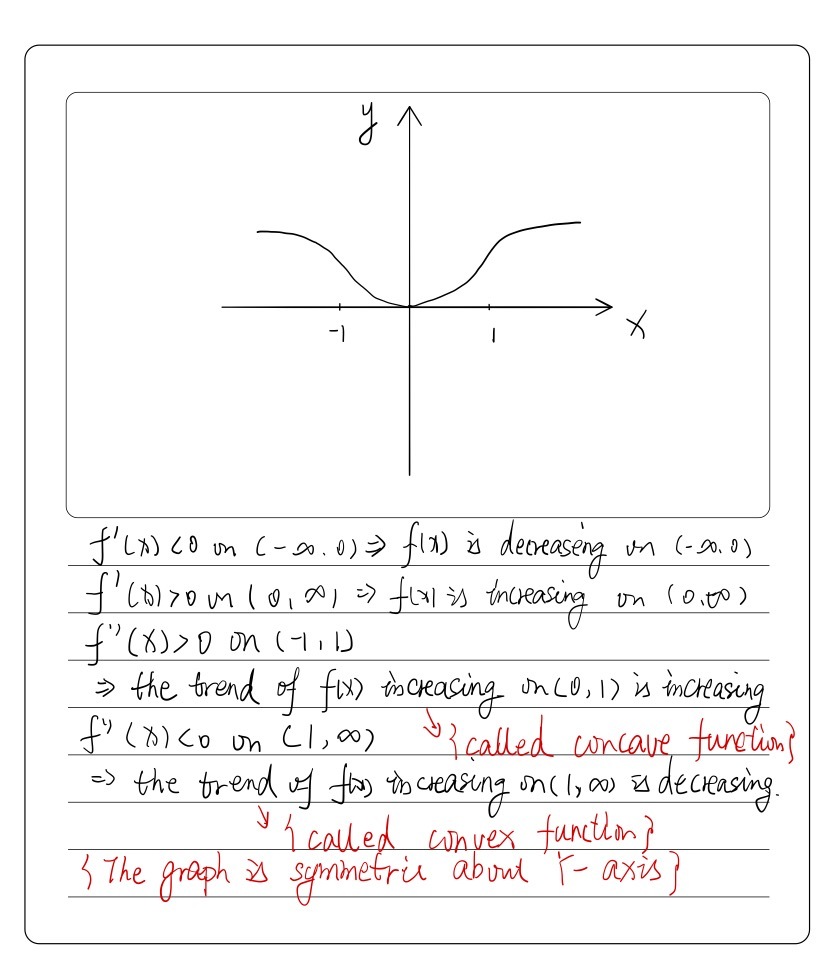 y
x
-1
1
f'(x)<0 on (-∞.0)⇒ f(x) is decreaseng on (-∞.0)
f'(x)>0 on (0,∞) ⇒ f(x) is increasing on (0,∞)
f''(x)>0 on (-1,1)
⇒ the trend of f(x) increasing on (0,1) is increasing
f''(x)<0 on (1,∞) ↘{called concave function}
⇒ the trend of f(x) increasing on (1,∞) is decreasing.
↘ {called convex function}
{The graph is symmetric about Y-axis}